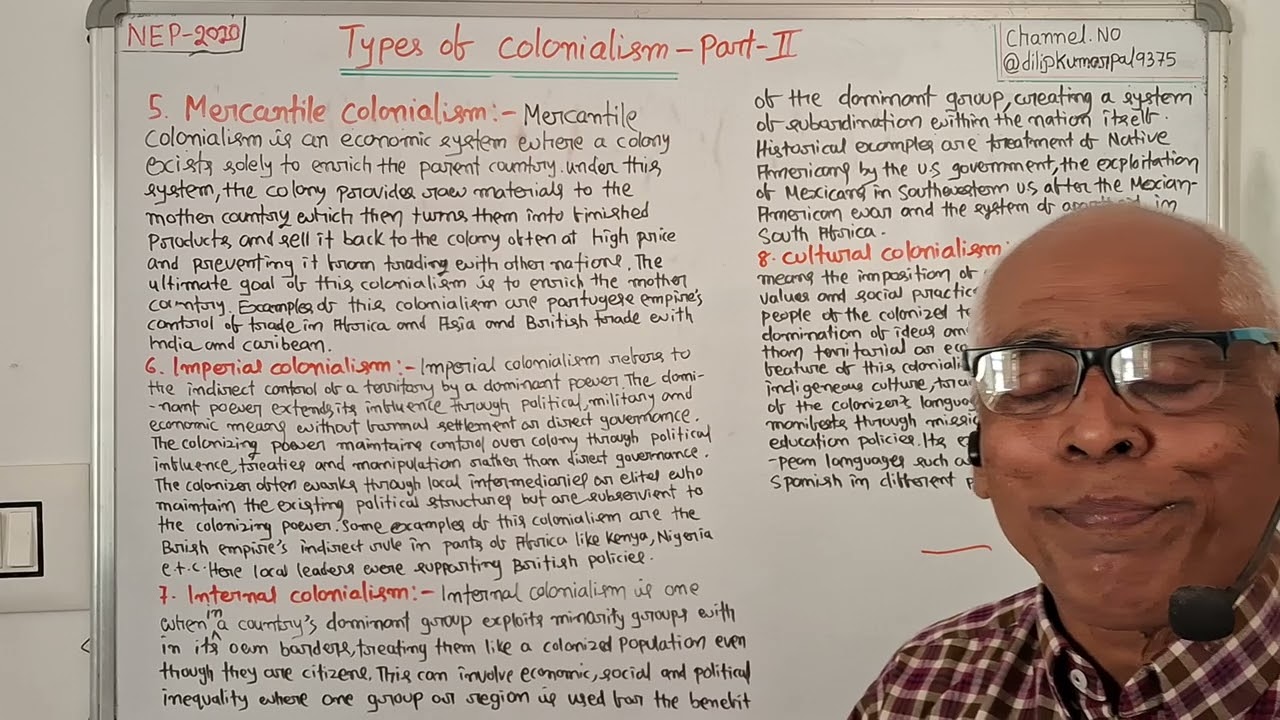 NEP-2020
Types of colonialism-Part-II
Channel.No
@dilipkumarpal9375
5. Mercantile colonialism:- Mercantile
colonialism is an economic system where a colony
exists solely to enrich the parent country. under this
system, the colony provides raw materials to the
mother country which then turns them into finished
products and sell it back to the colony often at high price
and preventing it from trading with other nations. The
ultimate goal of this colonialism is to enrich the mother
country. Examples of this colonialism are portugese empire's
control of trade in Africa and Asia and British trade with
India and caribean.
6. Imperial colonialism:- Imperial colonialism refers to
the indirect control of a territory by a dominant power. The domi-
-nant power extends its influence through political, military and
economic means without formal settlement or direct governance.
The colonizing power maintains control over colony through political
influence, treaties and manipulation rather than direct governance.
The colonizer often works through local intermediaries or elites who
maintain the existing political structures but are subservient to
the colonizing power. Some examples of this colonialism are the
Brish empire's indirect rule in parts of Africa like Kenya, Nigeria
e.t.c. Here local leaders were supporting British policies.
7. Internal colonialism:- Internal colonialism is one
when in a country's dominant group exploits minority groups with
in its own borders, treating them like a colonized population even
though they are citizens. This can involve economic, social and political
inequality where one group or region is used for the benefit
of the dominant group, creating a system
of subardination within the nation itself.
Historical examples are treatment of Native
Americans by the U.S government, the exploitation
of Mexicans in Southwestern US after the Mexian-
American war and the system of apartheid in
South Africa.
8. cultural colonialism:
means the imposition of
values and social practic
people of the colonized t
domination of ideas an
than territorial or eco
feature of this coloniali
indigeneous culture, tra
of the colonizer's languag
manifests through missio
education policies. Its e
-pean languages such a
Spanish in different p